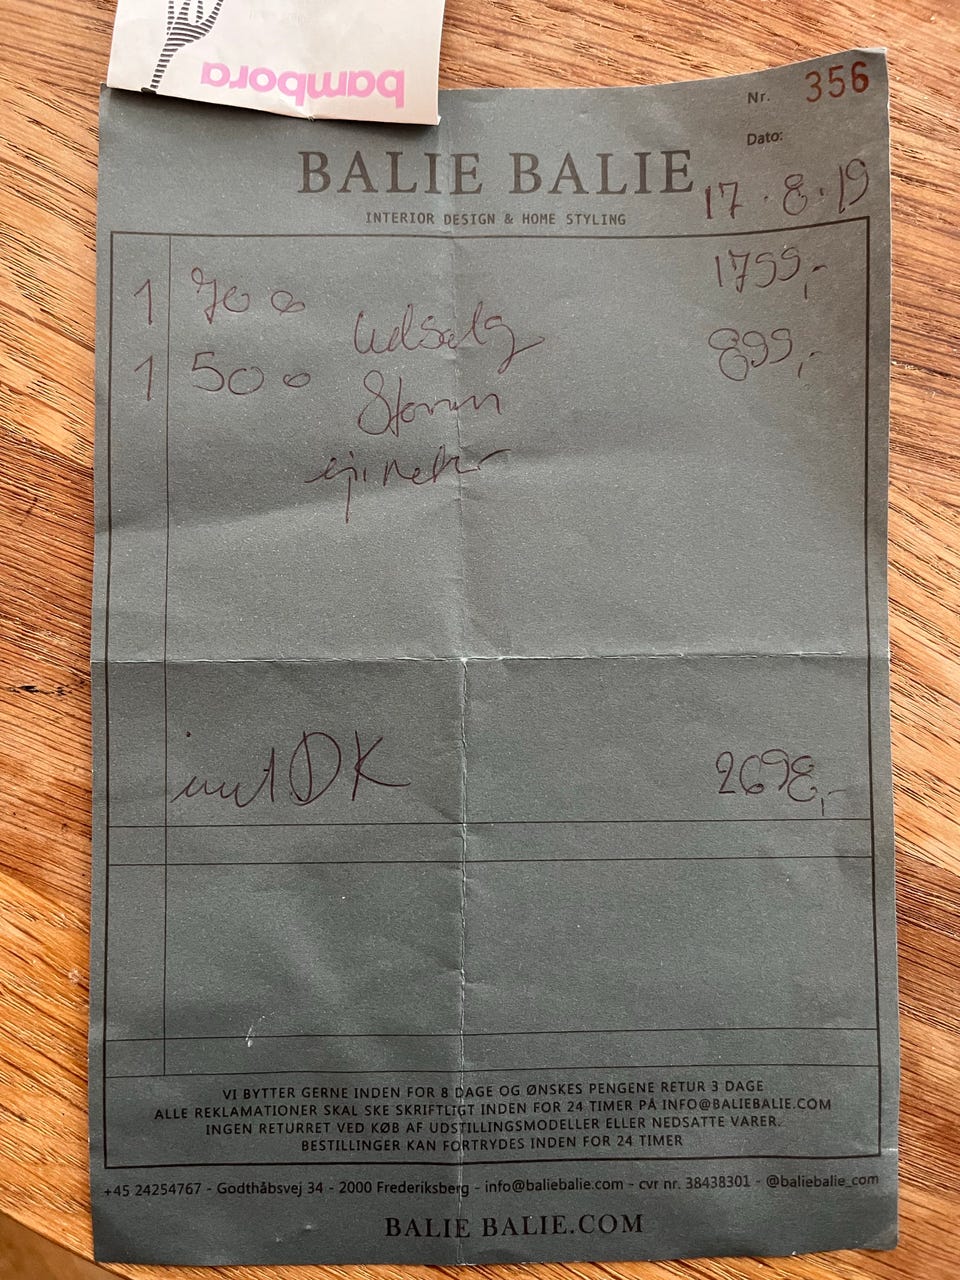 bambora
Nr. 356
Dato:
BALIE BALIE
17.8.19
INTERIOR DESIGN & HOME STYLING
1 70 1799,-
Udsalg
1 50 899,-
ej retur
DK 2698,-
VI BYTTER GERNE INDEN FOR 8 DAGE OG ØNSKES PENGENE RETUR 3 DAGE
ALLE REKLAMATIONER SKAL SKE SKRIFTLIGT INDEN FOR 24 TIMER PÅ INFO@BALIEBALIE.COM
INGEN RETURRET VED KØB AF UDSTILLINGSMODELLER ELLER NEDSATTE VARER.
BESTILLINGER KAN FORTRYDES INDEN FOR 24 TIMER
+45 24254767 - Godthåbsvej 34 - 2000 Frederiksberg - info@baliebalie.com - cvr nr. 38438301 - @baliebalie_com
BALIE BALIE.COM